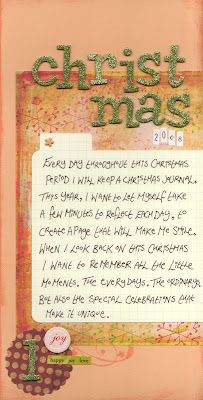 christ
mas
2008
Every day throughout this Christmas
period I will keep a Christmas journal.
This year, I want to let myself take
a few minutes to reflect each day, to
create a page that will make me smile.
When I look back on this Christmas
I want to remember all the little
moments. The everydays. The ordinarys.
But also the special celebrations that
make it unique.
joy
1
happy joy love